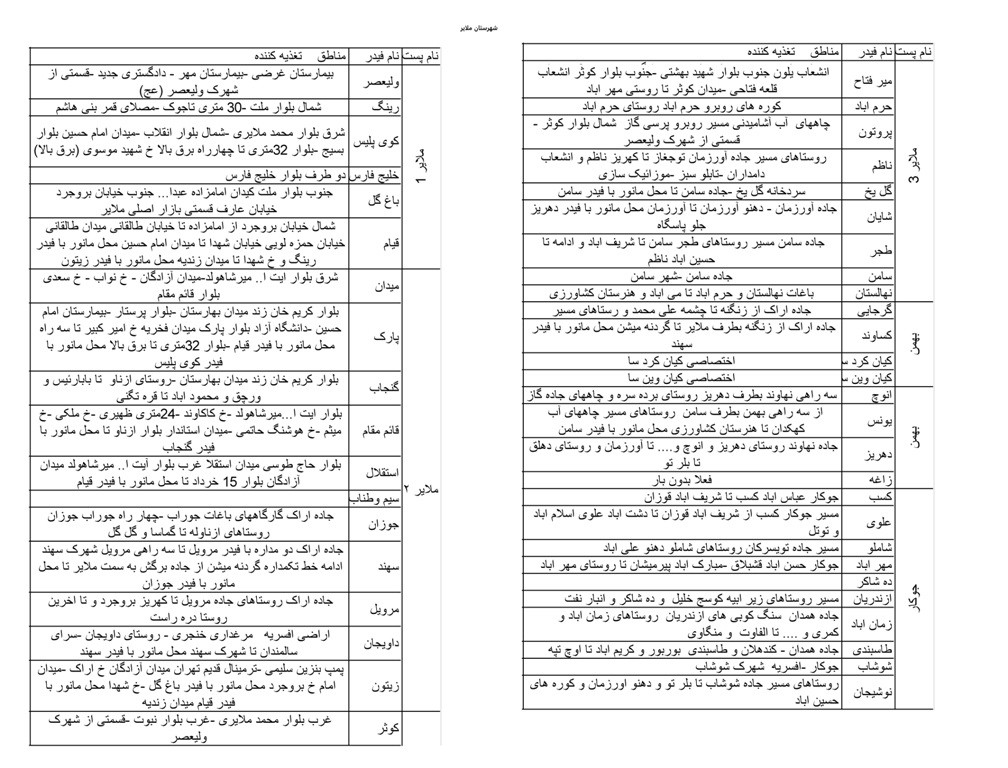 شهرستان ملایر
نام پست نام فیدر مناطق تغذیه کننده
میر فتاح
انشعاب یلون جنوب بلوار شهید بهشتی -جنوب بلوار کوثر انشعاب
قلعه فتاحی -میدان کوثر تا روستی مهر اباد
حرم اباد کوره های روبرو حرم اباد روستای حرم اباد
پروتون
چاههای آب آشامیدنی مسیر روبرو پرسی گاز شمال بلوار کوثر -
قسمتی از شهرک ولیعصر
ملایر 3
ناظم
روستاهای مسیر جاده آورزمان توجغاز تا کهریز ناظم و انشعاب
دامداران -تابلو سبز -موزائیک سازی
گل یخ سردخانه گل یخ -جاده سامن تا محل مانور با فیدر سامن
شایان
جاده آورزمان - دهنو آورزمان تا آورزمان محل مانور با فیدر دهریز
جلو پاسگاه
طجر
جاده سامن مسیر روستاهای طجر سامن تا شریف اباد و ادامه تا
حسین اباد ناظم
سامن جاده سامن -شهر سامن
نهالستان باغات نهالستان و حرم اباد تا می اباد و هنرستان کشاورزی
گرجایی جاده اراک از زنگنه تا چشمه علی محمد و رستاهای مسیر
بهمن
کساوند
جاده اراک از زنگنه بطرف ملایر تا گردنه میشن محل مانور با فیدر
سهند
کیان کرد س اختصاصی کیان کرد سا
کیان وین س اختصاصی کیان وین سا
انوچ سه راهی نهاوند بطرف دهریز روستای برده سره و چاههای جاده گاز
بهمن
یونس
از سه راهی بهمن بطرف سامن روستاهای مسیر چاههای آب
کهکدان تا هنرستان کشاورزی محل مانور با فیدر سامن
دهریز
جاده نهاوند روستای دهریز و انوچ و.... تا آورزمان و روستای دهلق
تا بلر تو
زاغه فعلا بدون بار
کسب جوکار عباس اباد کسب تا شریف اباد قوزان
علوی
مسیر جوکار کسب از شریف اباد قوزان تا دشت اباد علوی اسلام اباد
و توتل
شاملو مسیر جاده تویسرکان روستاهای شاملو دهنو علی اباد
مهر اباد جوکار حسن اباد قشبلاق -مبارک اباد پیرمیشان تا روستای مهر اباد
ده شاکر
جوکار
ازندریان مسیر روستاهای زیر ابیه کوسج خلیل و ده شاکر و انبار نفت
زمان اباد
جاده همدان سنگ کوبی های ازندریان روستاهای زمان اباد و
کمری و .... تا الفاوت و منگاوی
طاسبندی جاده همدان - کندهلان و طاسبندی بوربور و کریم اباد تا اوچ تپه
شوشاب جوکار -افسریه شهرک شوشاب
نوشیجان
روستاهای مسیر جاده شوشاب تا بلر تو و دهنو اورزمان و کوره های
حسین اباد
نام پست نام فیدر مناطق تغذیه کننده
ولیعصر
بیمارستان غرضی -بیمارستان مهر - دادگستری جدید -قسمتی از
شهرک ولیعصر (عج)
رینگ شمال بلوار ملت -30 متری تاجوک -مصلای قمر بنی هاشم
ملایر 1
کوی پلیس
شرق بلوار محمد ملایری -شمال بلوار انقلاب -میدان امام حسین بلوار
بسیج -بلوار 32متری تا چهارراه برق بالا خ شهید موسوی (برق بالا)
خلیج فارس دو طرف بلوار خلیج فارس
باغ گل
جنوب بلوار ملت کیدان امامزاده عبدا... جنوب خیابان بروجرد
خیابان عارف قسمتی بازار اصلی ملایر
قیام
شمال خیابان بروجرد از امامزاده تا خیابان طالقانی میدان طالقانی
خیابان حمزه لویی خیابان شهدا تا میدان امام حسین محل مانور با فیدر
رینگ و خ شهدا تا میدان زندیه محل مانور با فیدر زیتون
میدان
شرق بلوار ایت ا.. میرشاهولد-میدان آزادگان - خ نواب - خ سعدی
بلوار قائم مقام
پارک
بلوار کریم خان زند میدان بهارستان -بلوار پرستار -بیمارستان امام
حسین -دانشگاه آزاد بلوار پارک میدان فخریه خ امیر کبیر تا سه راه
محل مانور با فیدر قیام -بلوار 32متری تا برق بالا محل مانور با
فیدر کوی پلیس
گنجاب
بلوار کریم خان زند میدان بهارستان -روستای ازناو تا بابارئیس و
ورچق و محمود اباد تا قره تگنی
قائم مقام
بلوار ایت ا...میرشاهولد -خ کاکاوند -24متری ظهیری -خ ملکی -خ
میثم -خ هوشنگ حاتمی -میدان استاندار بلوار ازناو تا محل مانور با
فیدر گنجاب
ملایر ۲
استقلال
بلوار حاج طوسی میدان استقلا غرب بلوار آیت ا.. میرشاهولد میدان
آزادگان بلوار 15 خرداد تا محل مانور با فیدر قیام
سیم وطناب
جوزان
جاده اراک گارگاههای باغات جوراب -چهار راه جوراب جوزان
روستاهای ازناوله تا گماسا و گل گل
سهند
جاده اراک دو مداره با فیدر مرویل تا سه راهی مرویل شهرک سهند
ادامه خط تکمداره گردنه میشن از جاده برگش به سمت ملایر تا محل
مانور با فیدر جوزان
مرویل
جاده اراک روستاهای جاده مرویل تا کهریز بروجرد و تا اخرین
روستا دره راست
داویجان
اراضی افسریه مرغداری خنجری - روستای داویجان -سرای
سالمندان تا شهرک سهند محل مانور با فیدر سهند
زیتون
پمپ بنزین سلیمی -ترمینال قدیم تهران میدان آزادگان خ اراک -میدان
امام خ بروجرد محل مانور با فیدر باغ گل -خ شهدا محل مانور با
فیدر قیام میدان زندیه
کوثر
غرب بلوار محمد ملایری -غرب بلوار نبوت -قسمتی از شهرک
ولیعصر